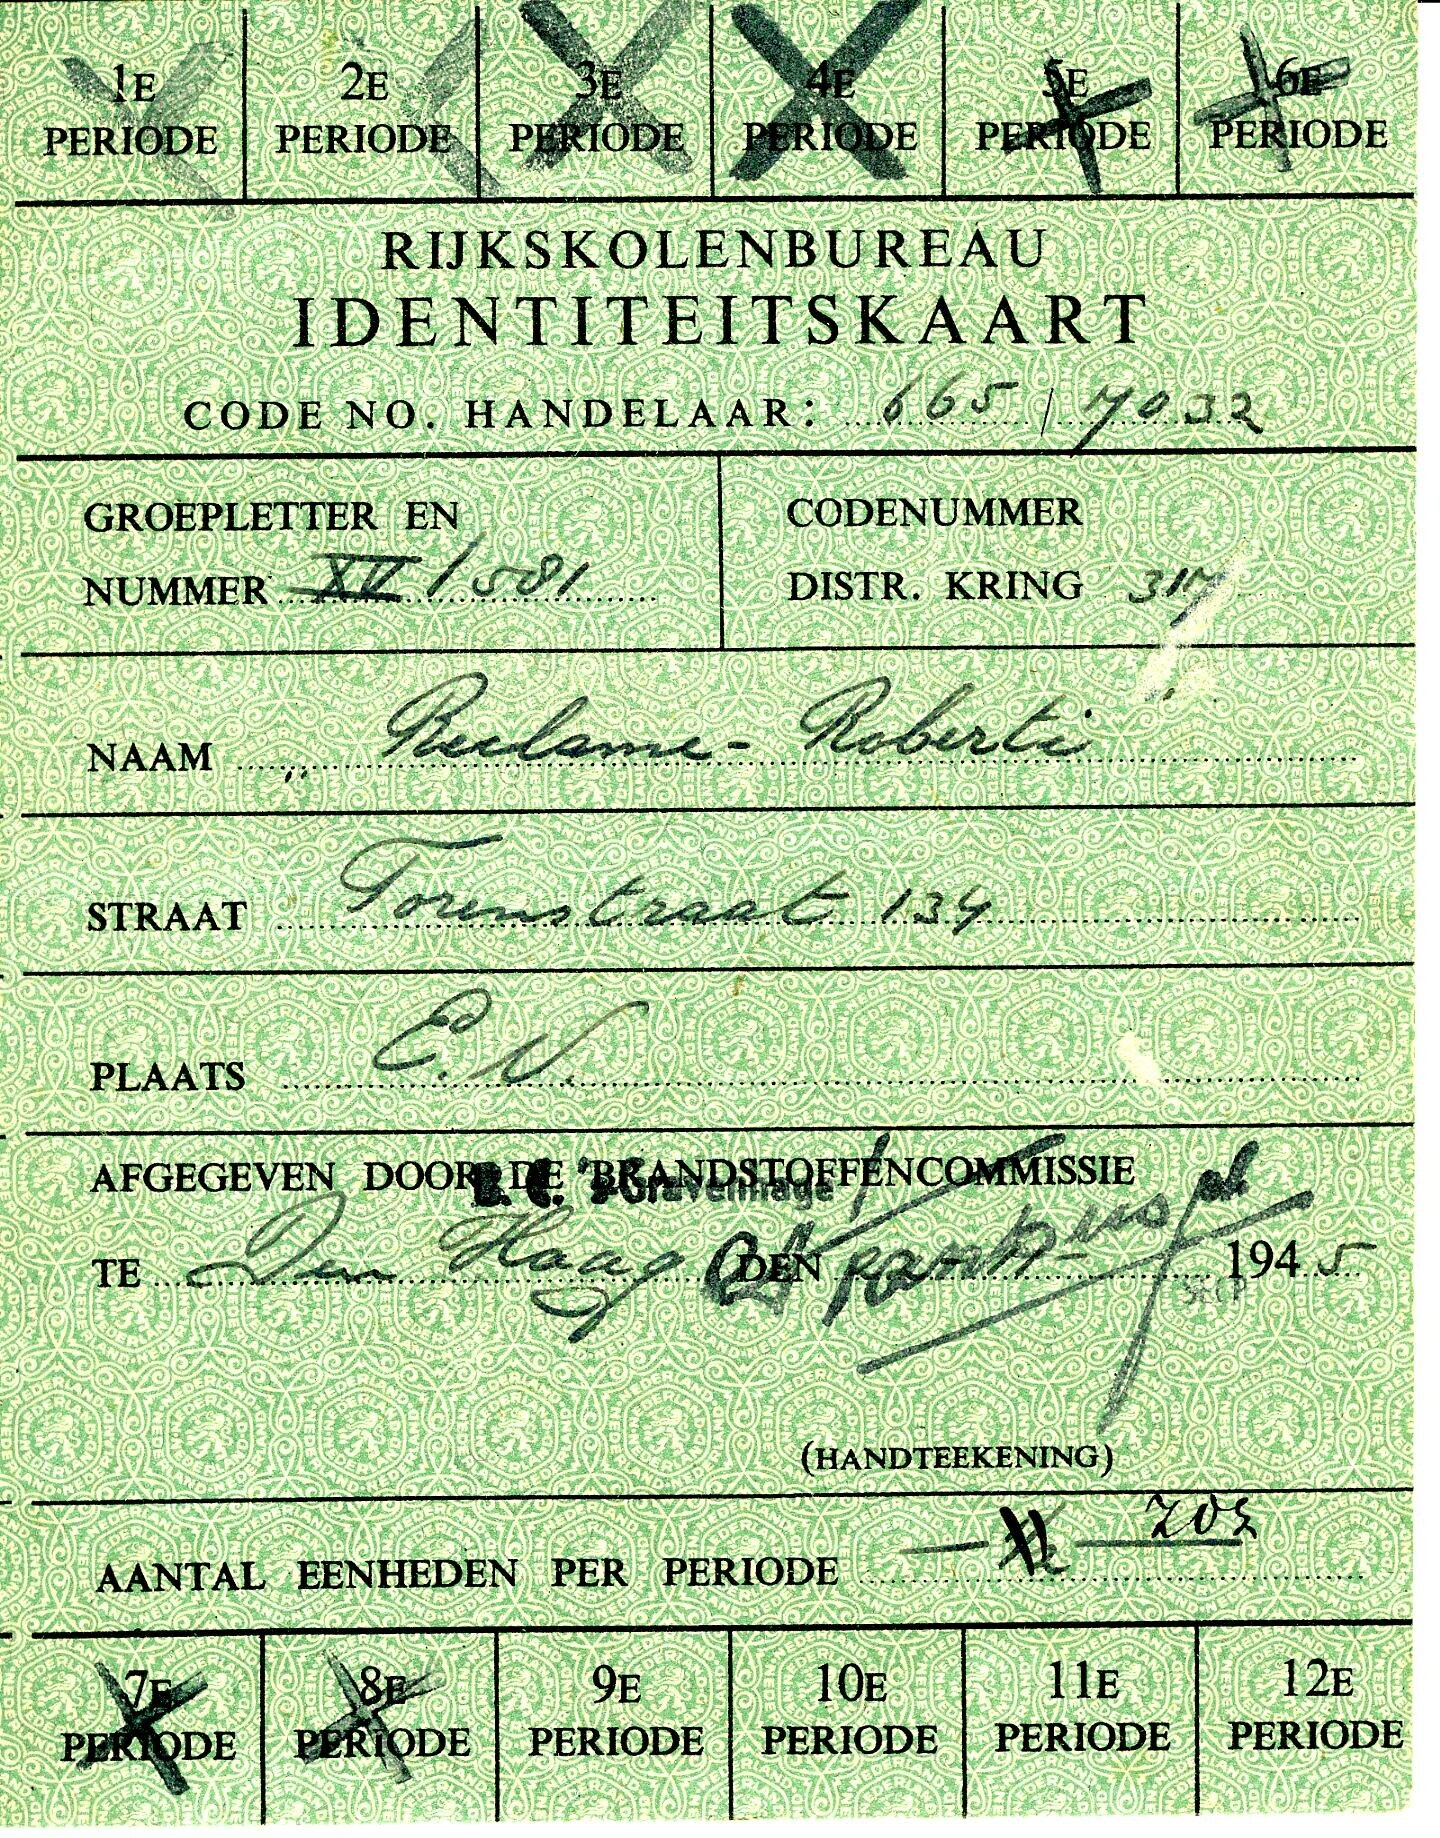 1E PERIODE 2E PERIODE 3E PERIODE 4E PERIODE 5E PERIODE 6E PERIODE
RIJKSKOLENBUREAU
IDENTITEITSKAART
CODE NO. HANDELAAR: 665 / 7032
GROEPLETTER EN
NUMMER XV / 581
CODENUMMER
DISTR. KRING 317
NAAM Reclame - Roberti
STRAAT Torenstraat 134
PLAATS E.V.
AFGEGEVEN DOOR DE BRANDSTOFFENCOMMISSIE
B. C. 's-Gravenhage
TE Den Haag DEN 1945
(HANDTEEKENING)
AANTAL EENHEDEN PER PERIODE
7E PERIODE 8E PERIODE 9E PERIODE 10E PERIODE 11E PERIODE 12E PERIODE